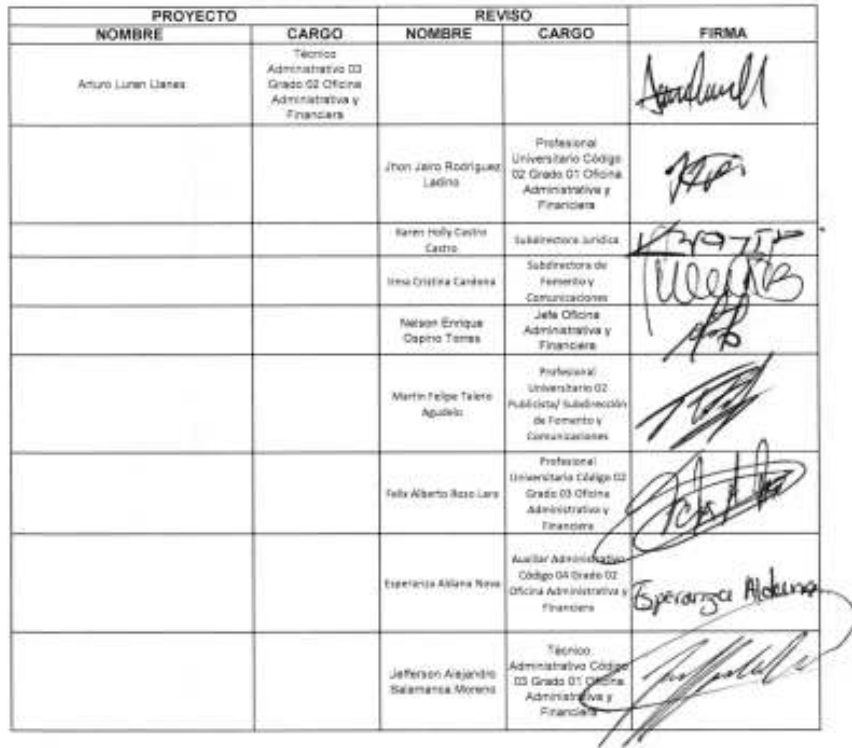 PROYECTO REVISO
NOMBRE CARGO NOMBRE CARGO FIRMA
Arturo Luran Llanes
Técnico
Administrativo 03
Grado 02 Oficina
Administrativa y
Financiera
Jhon Jairo Rodriguez
Ladino
Profesional
Universitario Código
02 Grado 01 Oficina
Administrativa y
Financiera
Karen Holly Castro
Castro
Subdirectora Jurídica
Irma Cristina Cardona
Subdirectora de
Fomento y
Comunicaciones
Nelson Enrique
Ospino Torres
Jefe Oficina
Administrativa y
Financiera
Martin Felipe Talero
Agudelo
Profesional
Universitario 02
Publicista/ Subdirección
de Fomento y
Comunicaciones
Felix Alberto Rozo Lara
Profesional
Universitario Código 02
Grado 03 Oficina
Administrativa y
Financiera
Esperanza Aldana Nova
Auxiliar Administrativo
Código 04 Grado 02
Oficina Administrativa y
Financiera
Esperanza Aldana
Jefferson Alejandro
Salamanca Moreno
Técnico
Administrativo Código
03 Grado 01 Oficina
Administrativa y
Financiera